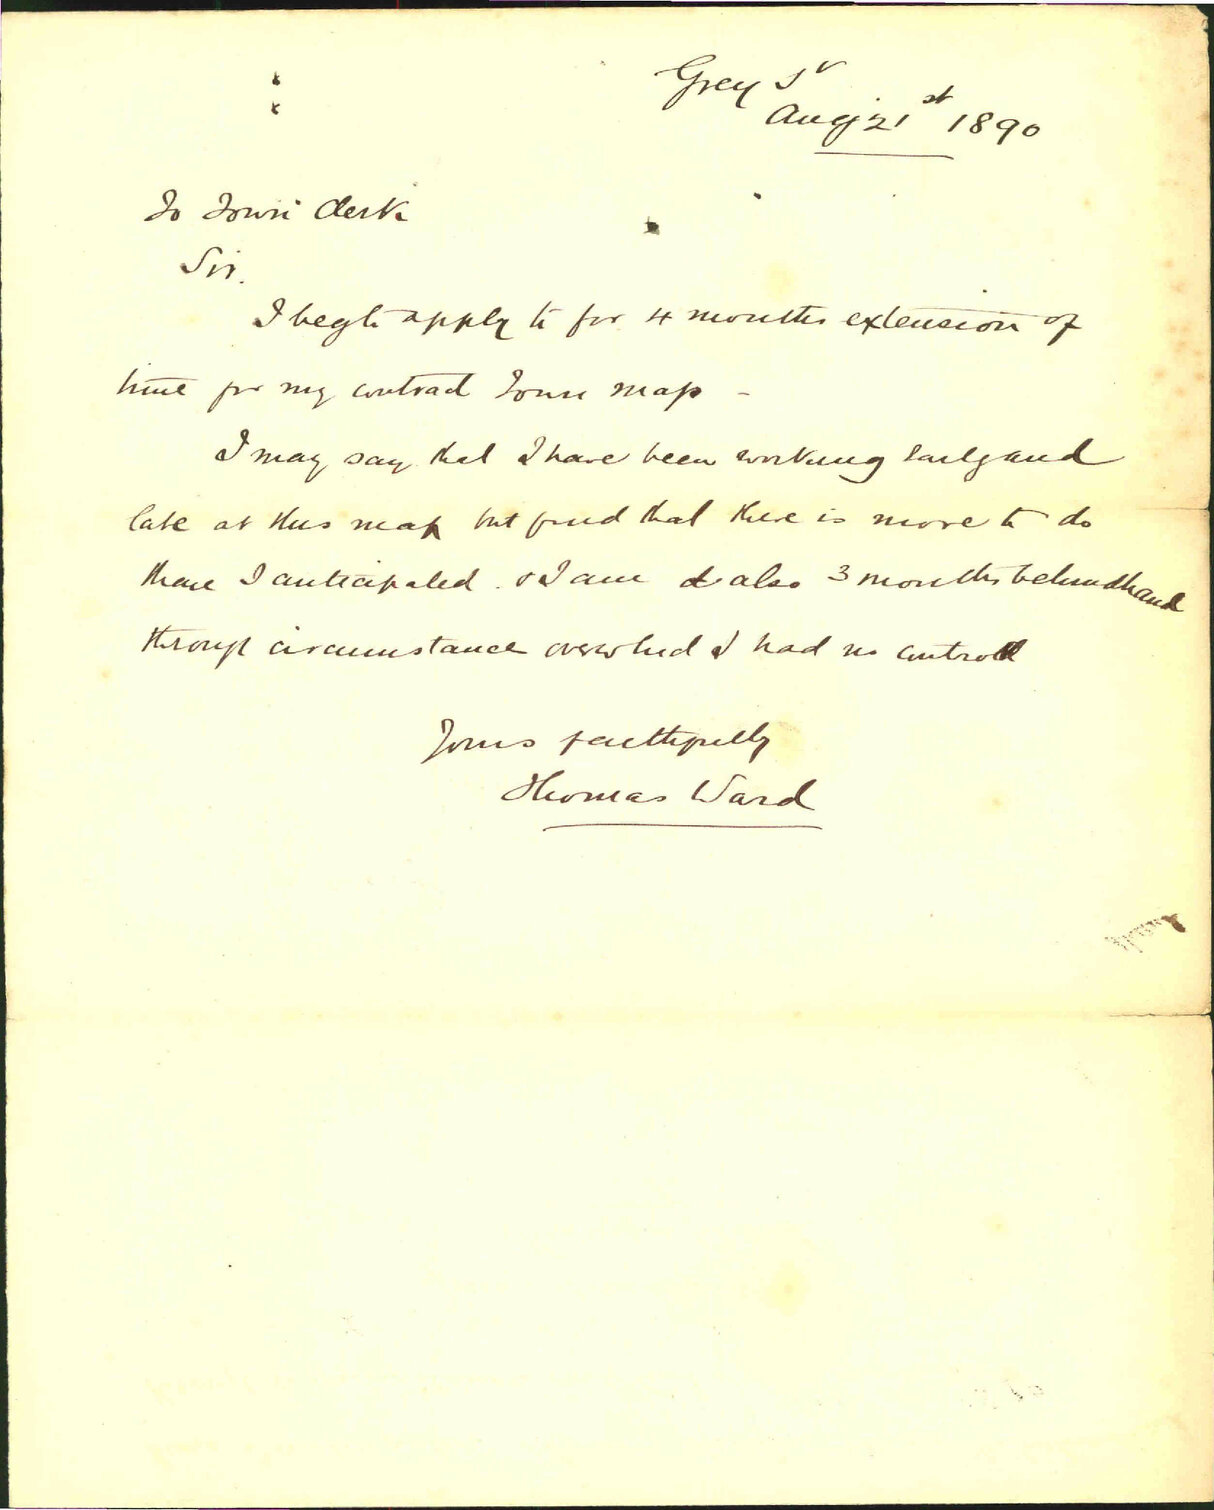 Grey St
Aug 21st 1890
To Town Clerk
Sir.
I beg to apply to for 4 months extension of
time for my contract Town map -
I may say that I have been working early and
late at this map but find that there is more to do
than I anticipated. & I am also 3 months behindhand
through circumstance over which I had no control
Yours faithfully
Thomas Ward